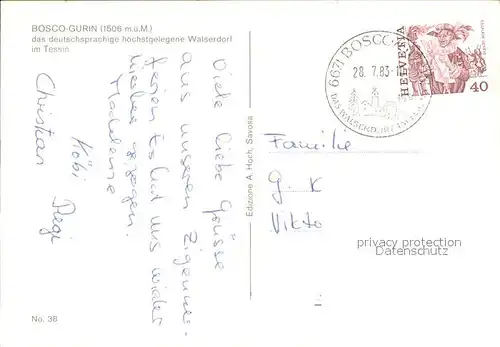 BOSCO-GURIN (1506 m.ü.M.)
das deutschsprachige höchstgelegene Walserdorf
im Tessin
6671 BOSCO-
28.7.83-1
DAS WALSERDORF IM
HELVETIA
40
Viele liebe Grüsse
aus unseren Zigeuner-
ferien Es hat uns wieder
hierher gezogen.
Madeleine
Köbi Regi
Christian
Edizione A. Hoch, Savosa
Familie
G. K
Vikto
privacy protection
Datenschutz
No. 38